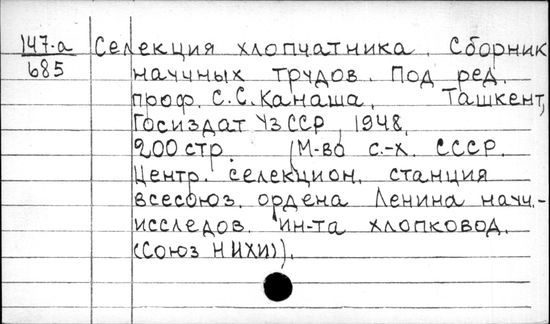 147-а Селекция хлопчатника. Сборник
685 научных трудов. Под ред.
проф. С.С. Канаша. Ташкент,
Госиздат УзССР, 1948.
200 стр. (М-во с.-х. СССР.
Центр. селекцион. станция
всесоюз. ордена Ленина научн.-
исследов. ин-та хлопковод.
(Союз НИХИ)).